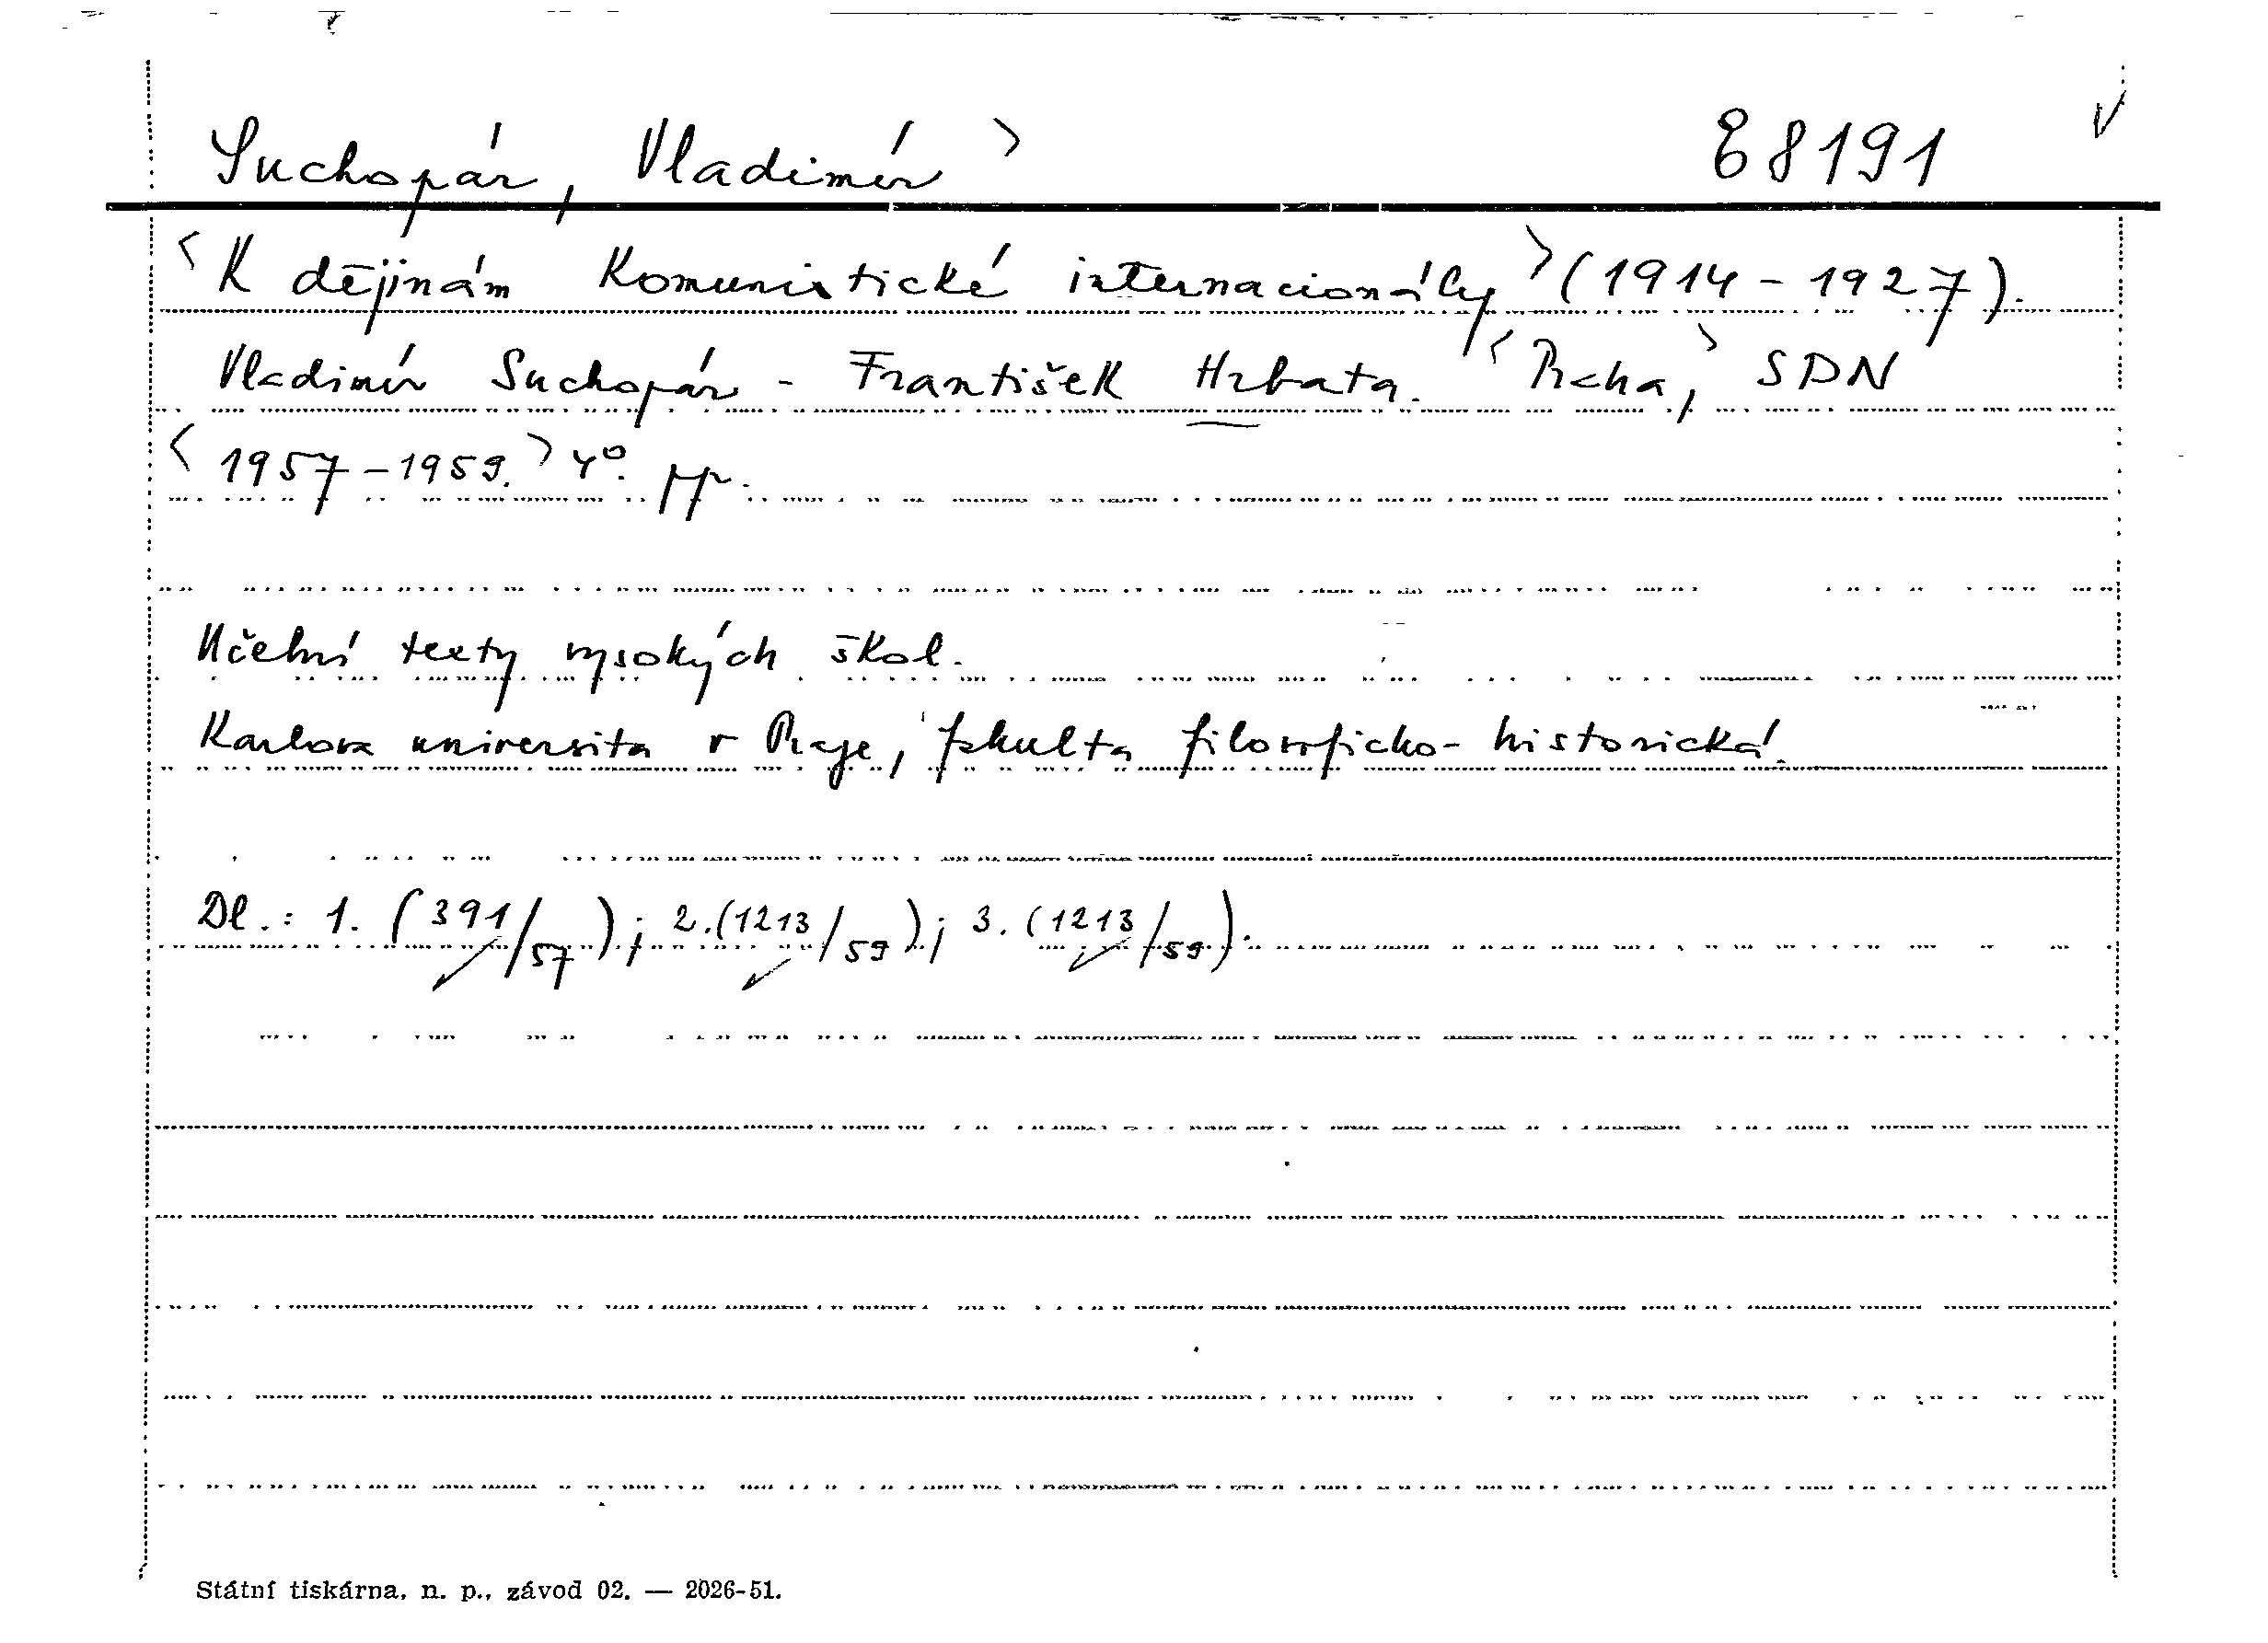 Suchopár, Vladimír > E8191 √
<K dějinám Komunistické internacionály> (1914-1927).
Vladimír Suchopár - František Hrbata. <Praha,> SDN
<1957-1959.> 4°. pp.
Učební texty vysokých škol.
Karlova universita v Praze, fakulta filosoficko-historická.
Dl.: 1. (391/57); 2. (1213/59); 3. (1213/59).
Státní tiskárna, n. p., závod 02. — 2026-51.